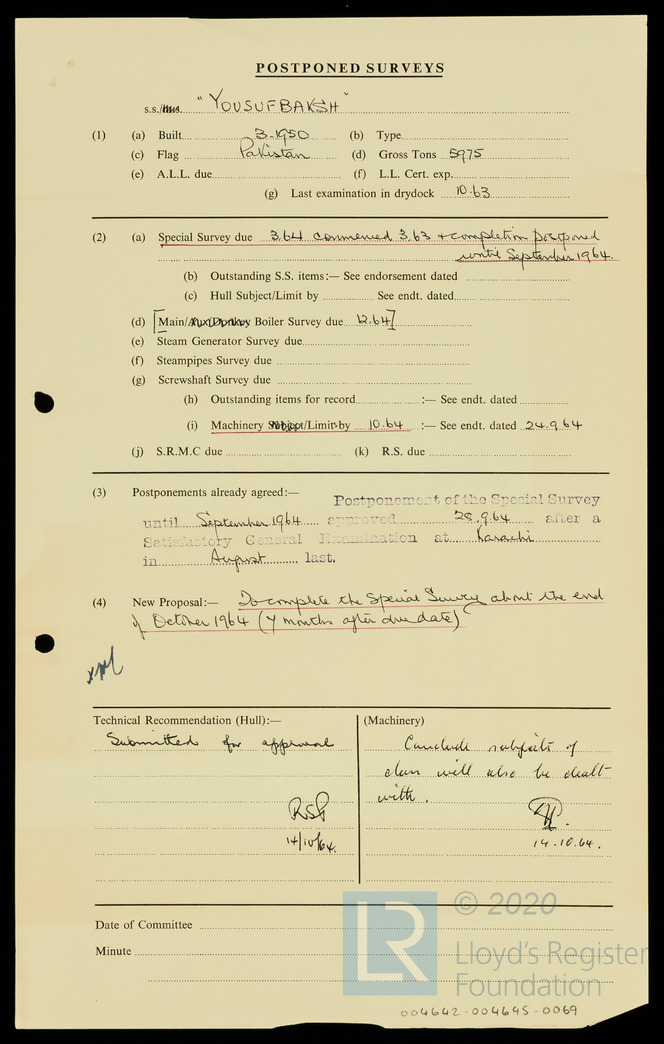 POSTPONED SURVEYS
s.s./m.s. "YOUSUFBAKSH"
(1) (a) Built 3-1950 (b) Type
(c) Flag Pakistan (d) Gross Tons 5975
(e) A.L.L. due (f) L.L. Cert. exp.
(g) Last examination in drydock 10.63
(2) (a) Special Survey due 3.64 commenced 3.63 + completion postponed
until September 1964.
(b) Outstanding S.S. items:— See endorsement dated
(c) Hull Subject/Limit by See endt. dated
(d) [Main/Aux/Donkey Boiler Survey due 12.64]
(e) Steam Generator Survey due
(f) Steampipes Survey due
(g) Screwshaft Survey due
(h) Outstanding items for record :— See endt. dated
(i) Machinery Subject/Limit by 10.64 :— See endt. dated 24.9.64
(j) S.R.M.C due (k) R.S. due
(3) Postponements already agreed:— Postponement of the Special Survey
until September 1964 approved 28.9.64 after a
Satisfactory General Examination at Karachi
in August last.
(4) New Proposal:— To complete the Special Survey about the end
of October 1964 (7 months after due date)
Technical Recommendation (Hull):— (Machinery)
Submitted for approval
Conclude subjects of
class will also be dealt
with.
14/10/64.
14.10.64.
Date of Committee
Minute
LR
© 2020
Lloyd's Register
Foundation
004642-004645-0069